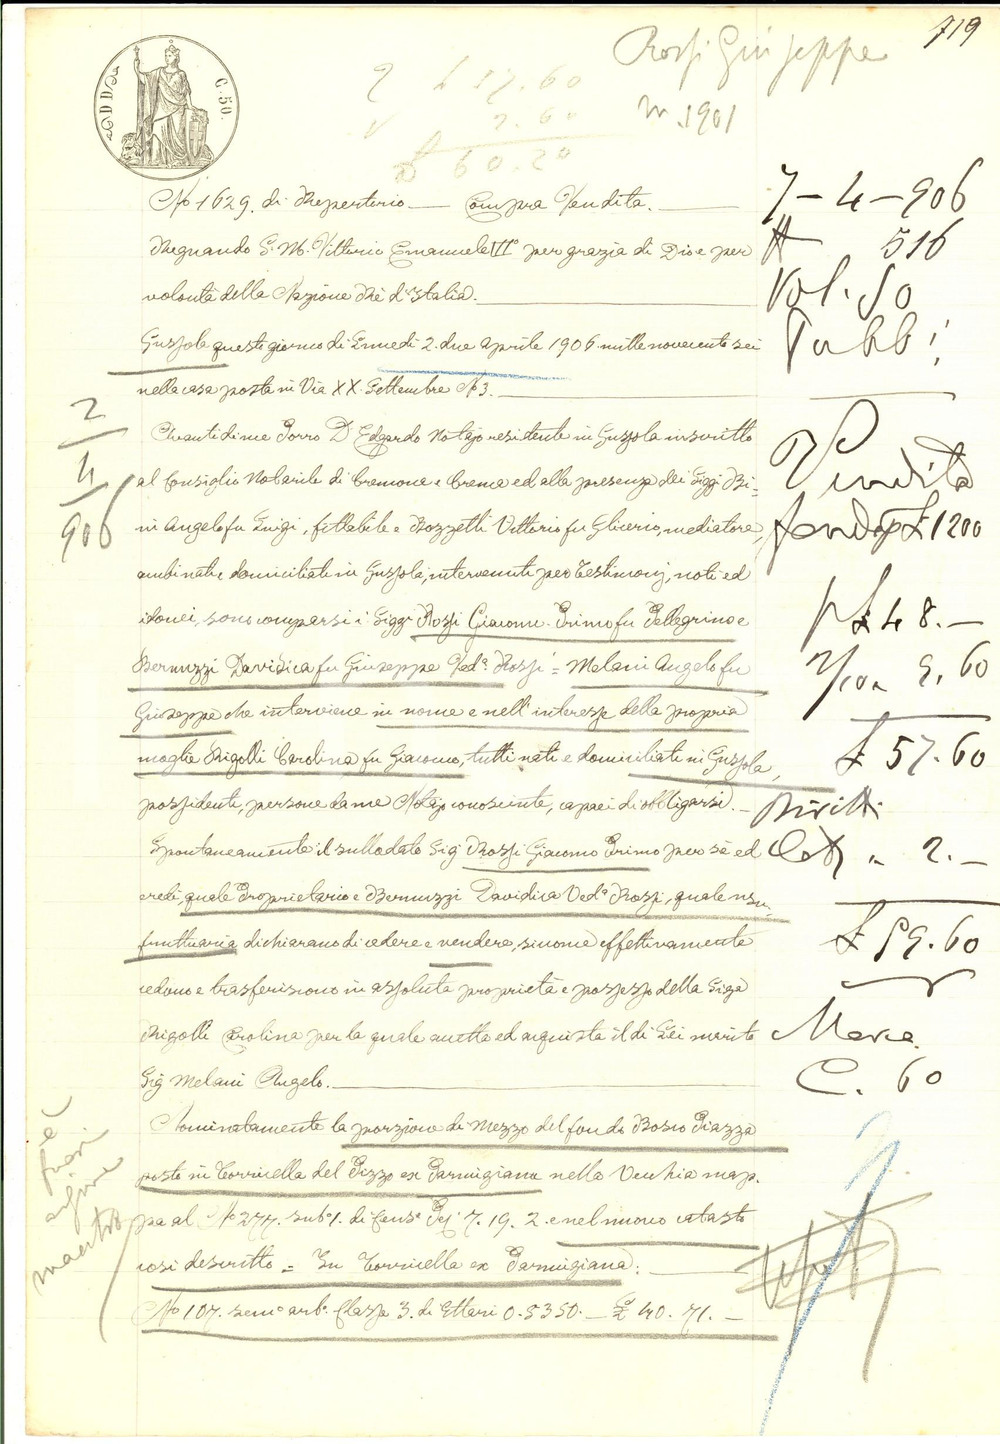 719
Rossi Giuseppe
in 1901
£ 57.60
2.60
£ 60.20
C. 50.
No 1629. di Repertorio — Compra Vendita.
Regnando S. M. Vittorio Emanuele III° per grazia di Dio e per
volontà della Nazione Rè d'Italia.
Gussola questo giorno di Lunedì 2. due aprile 1906 mille novecento sei
nella casa posta in Via XX. Settembre No 3.
Avanti di me Porro Dr Edgardo Notajo residente in Gussola inscritto
al Consiglio Notarile di Cremona e Crema ed alla presenza dei Siggi Bi=
ni Angelo fu Luigi, fittabile e Rozzetti Vittorio fu Glicerio, mediatore,
ambi nati e domiciliati in Gussola, intervenuti per testimonj, noti ed
idonei, sono comparsi i Siggi Rossi Giacomo Primo fu Pellegrino e
Bernuzzi Davidica fu Giuseppe Ved.a Rossi = Melani Angelo fu
Giuseppe che interviene in nome e nell'interesse della propria
moglie Rigolli Carolina fu Giacomo, tutti nati e domiciliati in Gussola,
possidenti, persone da me Notajo conosciute, capaci di obbligarsi. —
Spontaneamente il sullodato Sigr Rossi Giacomo Primo per sè ed
eredi, quale Proprietario e Bernuzzi Davidica Ved.a Rossi, quale usu-
fruttuaria dichiarano di cedere e vendere, siccome effettivamente
cedono e trasferiscono in assoluta proprietà e possesso della Siga
Rigolli Carolina per la quale accetta ed acquista il di Lei marito
Sig Melani Angelo.
Nominatamente la porzione di mezzo del fondo Bosco Piazza
posto in Torricella del Pizzo ex Parmigiana nella Vecchia map.
pa al No 277. sub.° 1. di Cens° Per 7. 19. 2. e nel nuovo catasto
così descritto = In Torricella ex Parmigiana:
No 107. sem° arb.° Classe 3. di Ettari 0.5350. — £ 40. 71. —
2
4
906
maestro
7-4-906
N 516
Vol. 50
Pubb!
Vendita
fondo p £ 1200
p £ 48. —
7/10 " 9. 60
£ 57. 60
Diritti
Cat " 2. —
£ 59. 60
Marca
C. 60